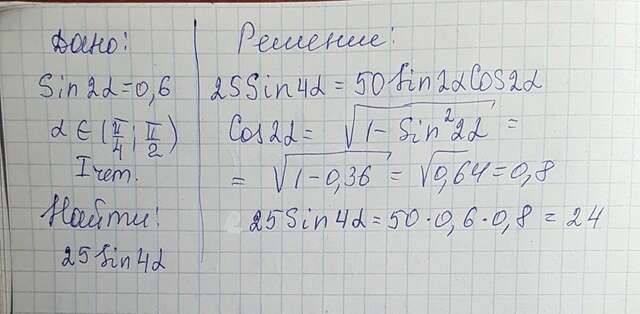 Дано:
Sin2α=0,6
α ∈ (π/4; π/2)
I чет.
Найти:
25Sin4α
Решение:
25Sin4α = 50Sin2αCos2α
Cos2α = √(1 - Sin²2α) =
= √(1-0,36) = √0,64 = 0,8
25Sin4α = 50·0,6·0,8 = 24